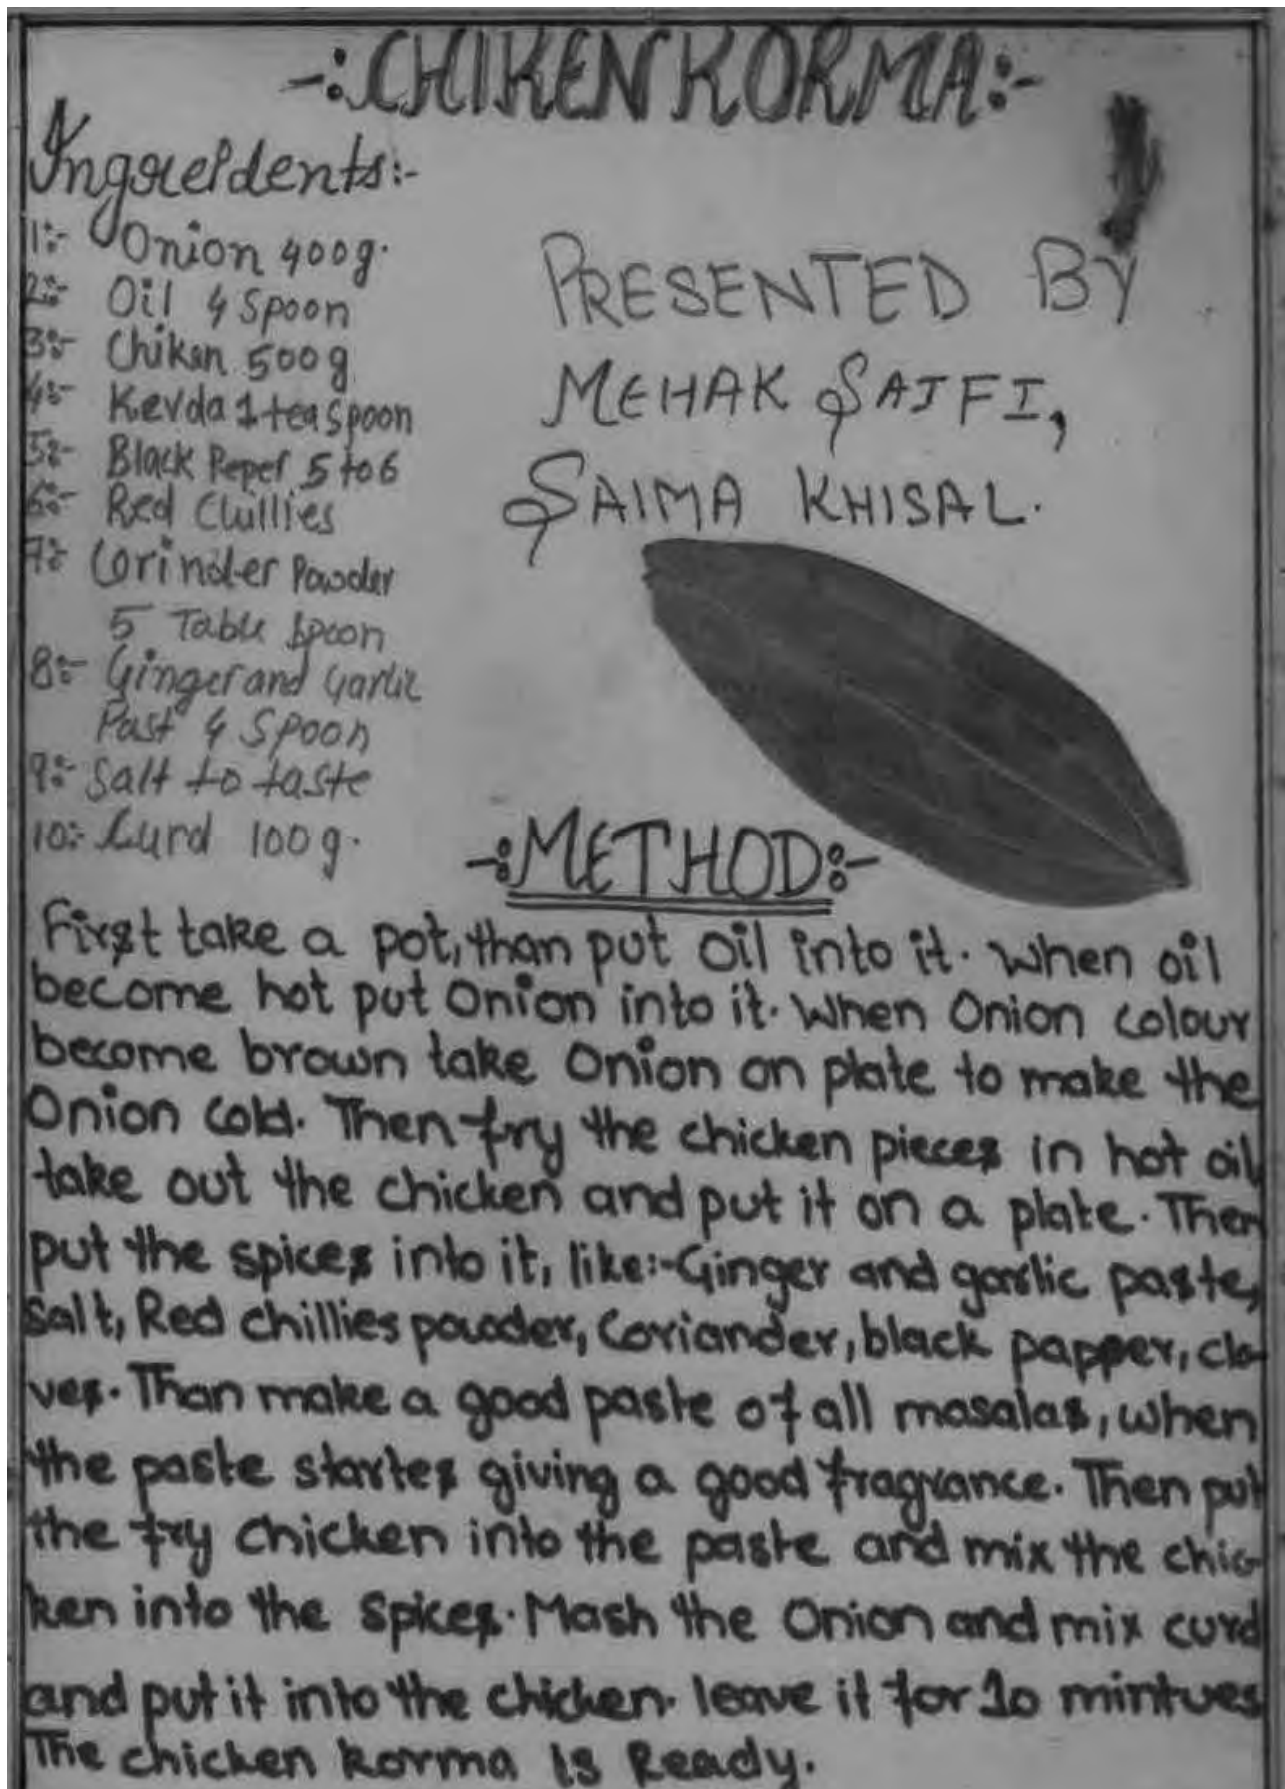 -:CHIKEN KORMA:-
Ingreidents:-
1:- Onion 400g.
2:- Oil 4 Spoon
3:- Chiken 500g
4:- Kevda 1 teaspoon
5:- Black Peper 5 to 6
6:- Red Chillies
7:- Corinder Powder
5 Table spoon
8:- Ginger and Garlic
Past 4 Spoon
9:- Salt to taste
10:- Curd 100g.
PRESENTED BY
MEHAK SAIFI,
SAIMA KHISAL.
-:METHOD:-
First take a pot, than put oil into it. When oil
become hot put Onion into it. When Onion colour
become brown take Onion on plate to make the
Onion cold. Then fry the chicken pieces in hot oil
take out the chicken and put it on a plate. Then
put the spices into it, like:-Ginger and garlic paste,
Salt, Red chillies powder, Coriander, black papper, clo-
ves. Than make a good paste of all masalas, when
the paste startes giving a good fragrance. Then put
the fry chicken into the paste and mix the chic-
ken into the spices. Mash the Onion and mix curd
and put it into the chicken. leave it for 10 mintues
The chicken korma is Ready.